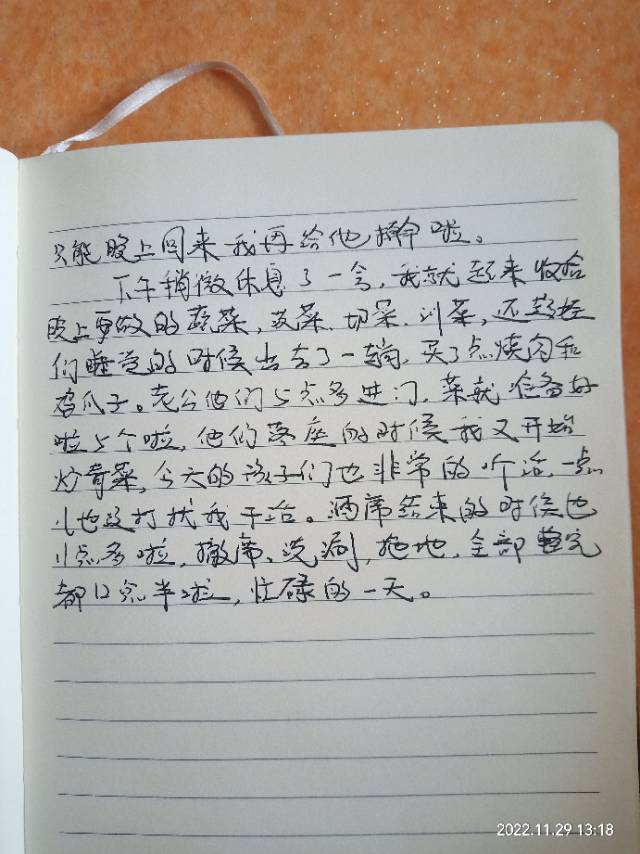 只能晚上回来我再给他擀啦。
下午稍微休息了一会,我就起来收拾
晚上要做的蔬菜,点菜、切菜、川菜,还趁孩
们睡觉的时候出去了一趟,买了点烧肉和
香瓜子。老公他们5点多进门,菜就准备好
啦5个啦,他们落座的时候我又开始
炒青菜,今天的孩子们也非常的听话,一点
儿也没打扰我干活。酒席结束的时候也
11点多啦,撤席、洗涮,拖地,全部整完
都12点半啦,忙碌的一天。
2022.11.29 13:18